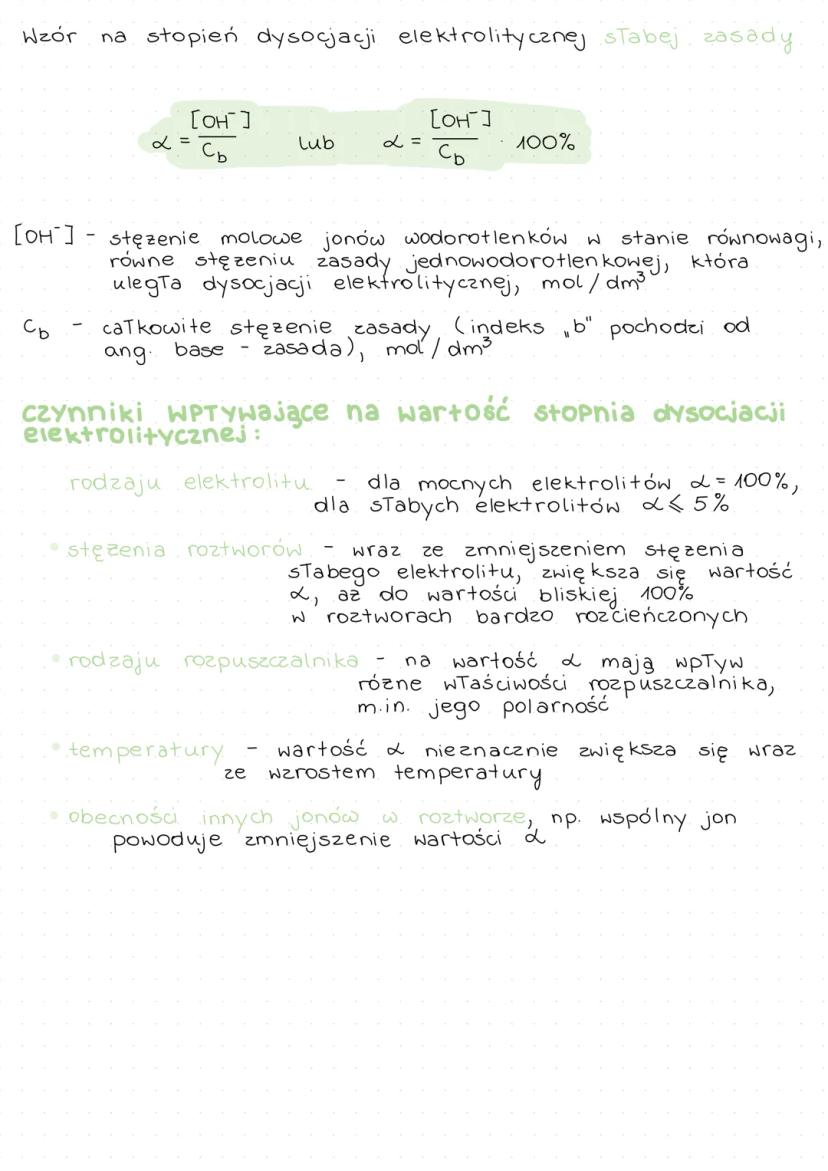 Wzór na stopień dysocjacji elektrolitycznej słabej zasady
α = [OH⁻]/Cb lub α = [OH⁻]/Cb · 100%
[OH⁻] - stężenie molowe jonów wodorotlenków w stanie równowagi,
równe stężeniu zasady jednowodorotlenkowej, która
uległa dysocjacji elektrolitycznej, mol/dm³
Cb - całkowite stężenie zasady (indeks „b" pochodzi od
ang. base - zasada), mol/dm³
czynniki wpływające na wartość stopnia dysocjacji
elektrolitycznej:
rodzaju elektrolitu - dla mocnych elektrolitów α = 100%,
dla słabych elektrolitów α ⩽ 5%
• stężenia roztworów - wraz ze zmniejszeniem stężenia
słabego elektrolitu, zwiększa się wartość
α, aż do wartości bliskiej 100%
w roztworach bardzo rozcieńczonych
• rodzaju rozpuszczalnika - na wartość α mają wpływ
różne właściwości rozpuszczalnika,
m.in. jego polarność
• temperatury - wartość α nieznacznie zwiększa się wraz
ze wzrostem temperatury
• obecności innych jonów w roztworze, np. wspólny jon
powoduje zmniejszenie wartości α